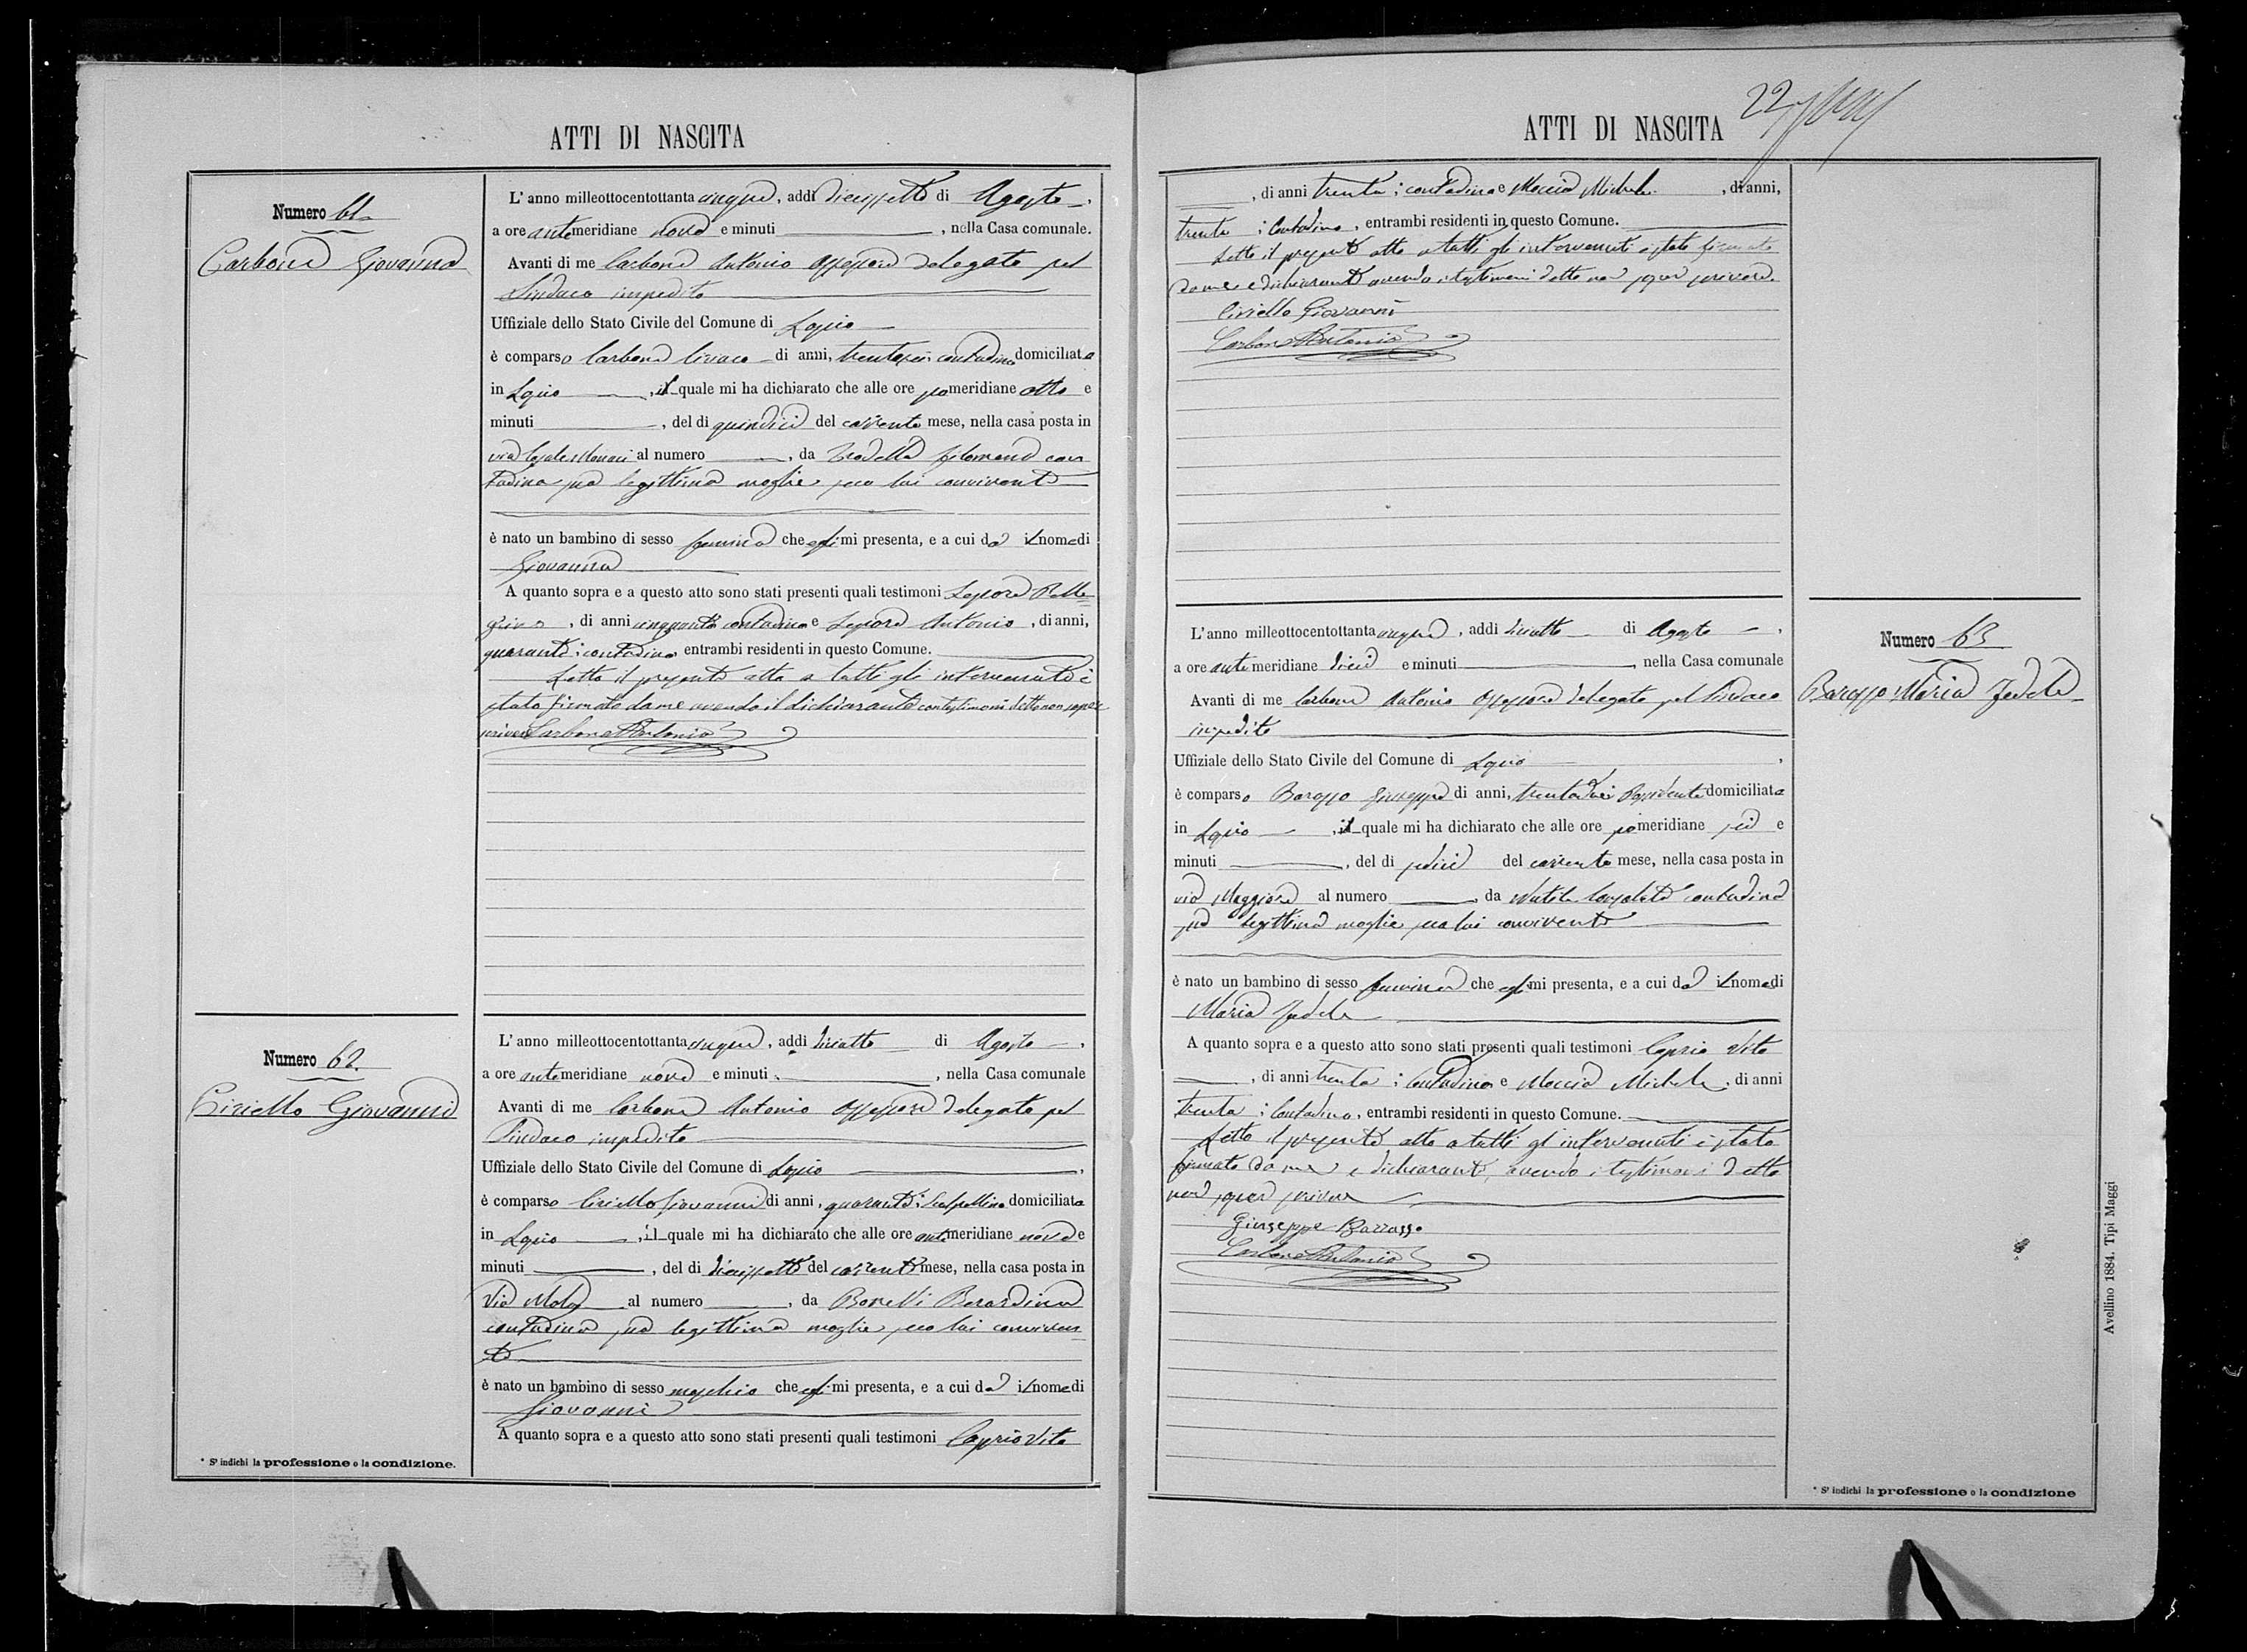 ATTI DI NASCITA
Numero 61
Carbone Giovanna
L' anno milleottocentottanta cinque, addì diecissette di Agosto,
a ore antimeridiane nove e minuti, nella Casa comunale.
Avanti di me Carbone Antonio Assessore delegato pel
Sindaco impedito
Uffiziale dello Stato Civile del Comune di Lapio
è comparso Carbone Ciriaco di anni, trentasei contadino domiciliato
in Lapio, il quale mi ha dichiarato che alle ore pomeridiane otto e
minuti, del di quindici del corrente mese, nella casa posta in
via al numero, da Filomena con
tadina sua legittima moglie seco lui convivente
è nato un bambino di sesso feminino che egli mi presenta, e a cui dà il nome di
Giovanna
A quanto sopra e a questo atto sono stati presenti quali testimoni Lepore Pelle
grino, di anni cinquanta contadino e Lepore Antonio, di anni,
quaranta contadino, entrambi residenti in questo Comune.
Letto il presente atto a tutti gli intervenuti è
stato firmato da me avendo il dichiarante con testimoni detto non sapere
scrivere Carbone Antonio
Numero 62.
Ciriello Giovanni
L' anno milleottocentottanta cinque, addì diciotto di Agosto,
a ore antimeridiane nove e minuti, nella Casa comunale
Avanti di me Carbone Antonio Assessore delegato pel
Sindaco impedito
Uffiziale dello Stato Civile del Comune di Lapio,
è comparso Ciriello Giovanni di anni, quaranta: Scalpellino domiciliato
in Lapio, il quale mi ha dichiarato che alle ore antimeridiane nove e
minuti, del di diecissette del corrente mese, nella casa posta in
Via al numero, da Bonelli Berardina
contadina sua legittima moglie seco lui conviven
te
è nato un bambino di sesso maschio che egli mi presenta, e a cui dà il nome di
Giovanni
A quanto sopra e a questo atto sono stati presenti quali testimoni Caprio Vito
* S' indichi la professione o la condizione.
ATTI DI NASCITA
22
, di anni trenta: contadino e Moccia Michele, di anni,
trenta: Contadino, entrambi residenti in questo Comune.
Letto il presente atto a tutti gli intervenuti è stato firmato
da me e dichiarante avendo i testimoni detto non saper scrivere.
Ciriello Giovanni
Carbone Antonio
Numero 63
Barasso Maria Fedele
L' anno milleottocentottanta cinque, addì diciotto di Agosto,
a ore antimeridiane dieci e minuti, nella Casa comunale
Avanti di me Carbone Antonio Assessore delegato pel Sindaco
impedito
Uffiziale dello Stato Civile del Comune di Lapio,
è comparso Barasso Giuseppe di anni, trentadue Possidente domiciliato
in Lapio, il quale mi ha dichiarato che alle ore pomeridiane sei e
minuti, del di sedici del corrente mese, nella casa posta in
via Maggiore al numero, da contadina
sua legittima moglie seco lui convivente
è nato un bambino di sesso feminino che egli mi presenta, e a cui dà il nome di
Maria Fedele
A quanto sopra e a questo atto sono stati presenti quali testimoni Caprio Vito
, di anni trenta: Contadino e Moccia Michele, di anni
trenta: Contadino, entrambi residenti in questo Comune.
Letto il presente atto a tutti gl' intervenuti è stato
firmato da me e dichiarante, avendo i testimoni detto
non saper scrivere
Giuseppe Barrasso
Carbone Antonio
* S' indichi la professione o la condizione
Avellino 1884. Tipi Maggi